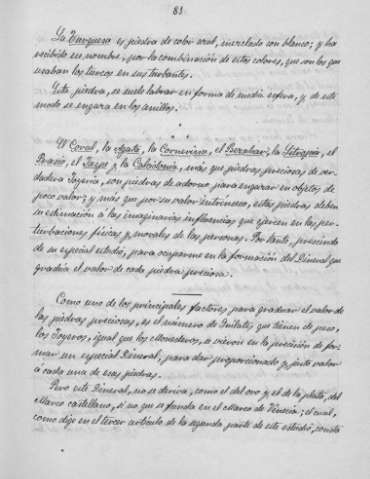 81
La Turquesa es piedra de color azul, mezclado con blanco; y ha
recibido su nombre, por la combinación de estos colores, que son los que
usaban los turcos en sus turbantes.
Esta piedra, se suele labrar en forma de media esfera, y de este
modo se engarza en los anillos.
El Coral, la Agata, la Cornerina, el la el
Prasio, el Jaspe y la Calcidonia, más que piedras preciosas de ver-
dadera Joyería, son piedras de adorno para engarzar en objetos de
poco valor; y más que por su valor intrínseco, estas piedras deben
su estimación a las imaginarias influencias que ejercen en las per-
turbaciones físicas y morales de las personas. Por tanto, prescindo
de su especial estudio, para ocuparme en la formación del Dineral que
gradúa el valor de cada piedra preciosa.
Como uno de los principales factores, para graduar el valor de
las piedras preciosas, es el número de Quilates que tienen de peso,
los Joyeros, igual que los Monederos, se vieron en la precisión de for-
mar un especial Dineral, para dar proporcionado y justo valor
á cada una de esas piedras.
Pero este Dineral, no se deriva, como el del oro y el de la plata, del
Marco castellano, si no que se funda en el Marco de Venecia; el cual,
como dige en el tercer artículo de la segunda parte de este estudio, consta